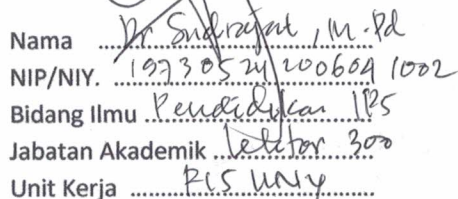 Nama Dr Sudrajat, M.Pd
NIP/NIY. 19730524 200604 1002
Bidang Ilmu Pendidikan IPS
Jabatan Akademik Lektor 300
Unit Kerja FIS UNY